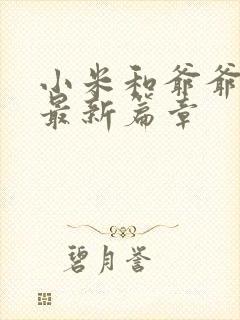 小米和爷爷
最新篇章
碧月誉